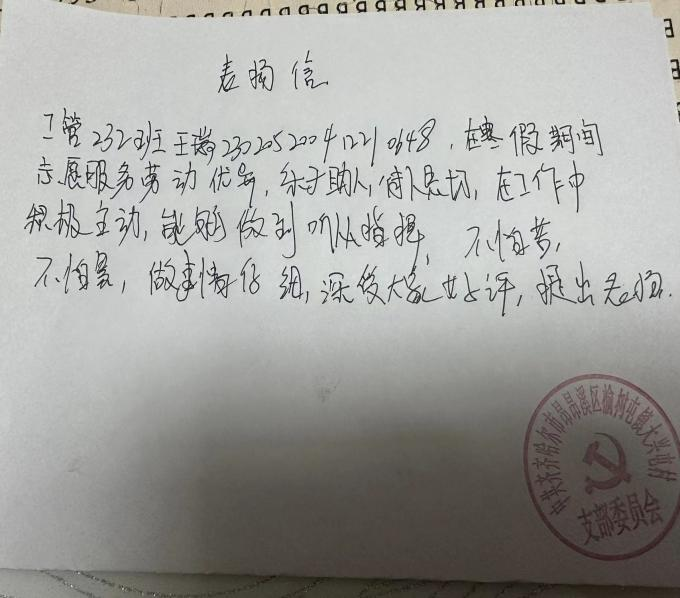 表扬信
工管232班王瑞230205200412210648，在寒假期间
志愿服务劳动优异，乐于助人，待人恳切，在工作中
积极主动，能够做到听从指挥，不怕苦，
不怕累，做事情仔细，深受大家好评，提出表扬.
中共齐齐哈尔市昂昂溪区榆树屯镇大兴屯村
支部委员会